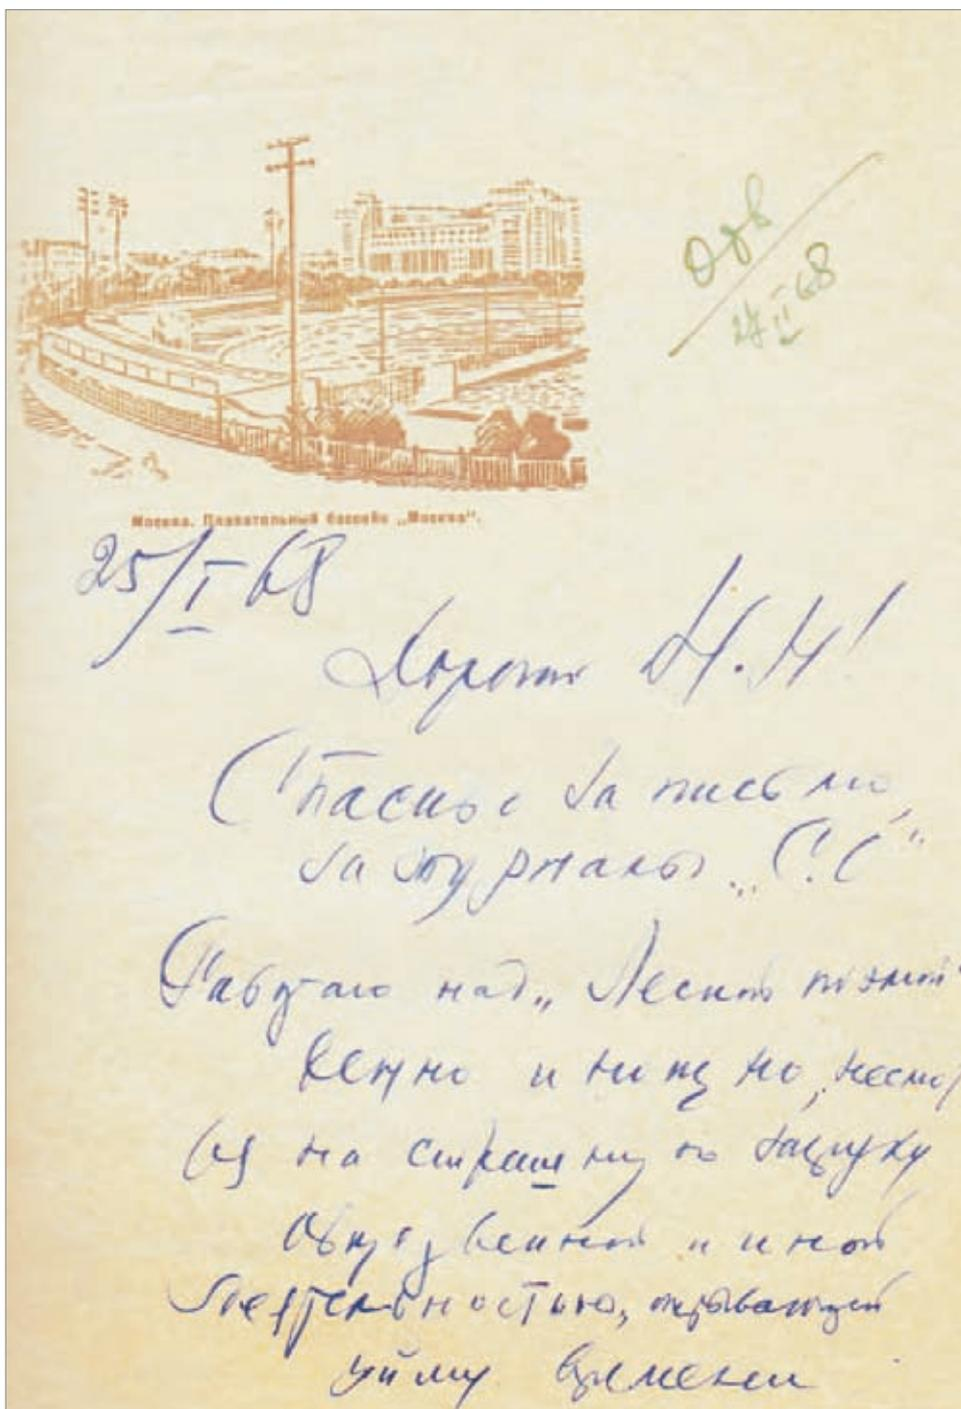 Отв
27/II 68
Москва. Плавательный бассейн „Москва".
25/I 68
Дорогой Н.Н!
Спасибо за письмо,
за журналы „С.С"
Работаю над „Лесной поэмой"
денно и нощно, несмот
ря на страшную загрузку
общественной и иной
деятельностью, отрывающей
уйму времени